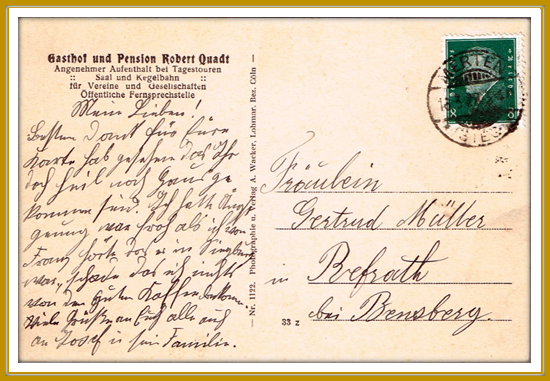 Gasthof und Pension Robert Quadt
Angenehmer Aufenthalt bei Tagestouren
:: Saal und Kegelbahn ::
für Vereine und Gesellschaften
Öffentliche Fernsprechstelle
Meine Lieben!
Besten Dank für Eure
Karte hab gesehen das Ihr
doch heil nach Hause
gekommen sind. Ich hatte Angst
genug war froh als ich von
Franz hörte das er in Siegburg
war, schade das ich nichts
von den guten Kaffee bekomm.
Viele Grüße an Euch alle auch
an Josef u sein Familie.
Nr. 1122. Photographie u. Verlag A. Wacker, Lohmar, Bez. Cöln
33 z
Fräulein
Gertrud Müller
in Refrath
bei Bensberg.
8